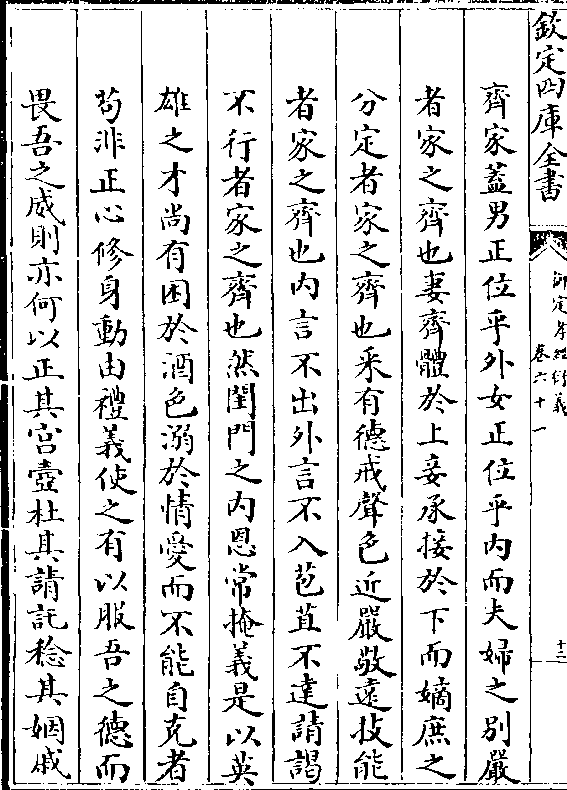 欽定四庫全書
御定孝經衍義
卷六十一
十三
齊家蓋男正位乎外女正位乎内而夫婦之别嚴
者家之齊也妻齊體於上妾承接於下而嫡庶之
分定者家之齊也采有德戒聲色近嚴敬遠技能
者家之齊也内言不出外言不入苞苴不達請謁
不行者家之齊也然閨門之内恩常掩義是以英
雄之才尚有困於酒色溺於情愛而不能自克者
茍非正心修身動由禮義使之有以服吾之德而
畏吾之威則亦何以正其宫壼杜其請託稔其姻戚